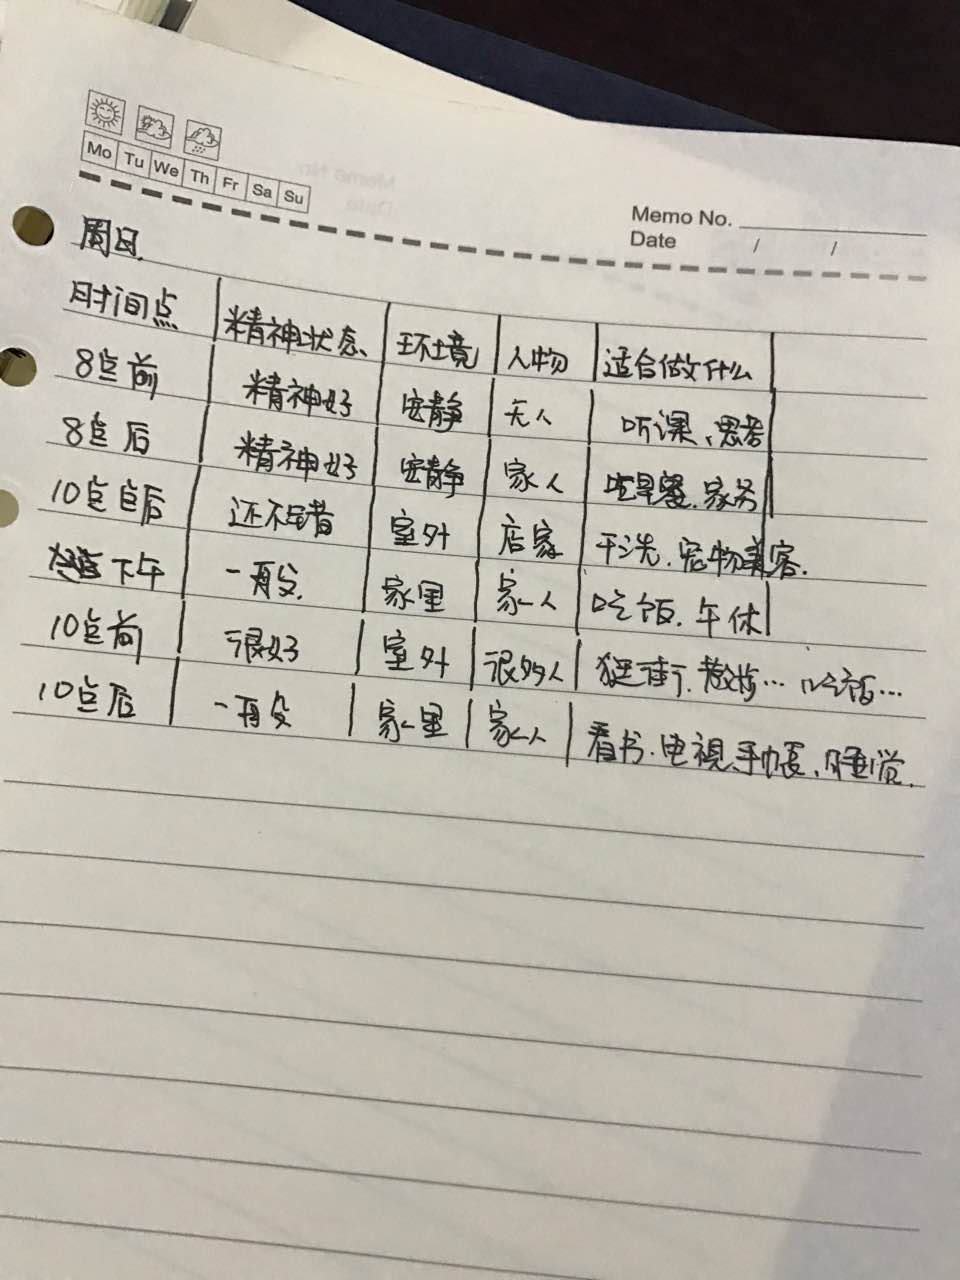 Mo Tu We Th Fr Sa Su
Memo No.
Date / /
周日.
时间点 精神状态 环境 人物 适合做什么
8点前 精神好 安静 无人 听课、思考
8点后 精神好 安静 家人 吃早餐.家务
10点后 还不错 室外 店家 干洗.宠物美容.
下午 一般 家里 家人 吃饭.午休
10点前 很好 室外 很多人 逛街.散步… 吃饭…
10点后 一般 家里 家人 看书.电视.手帐、睡觉.